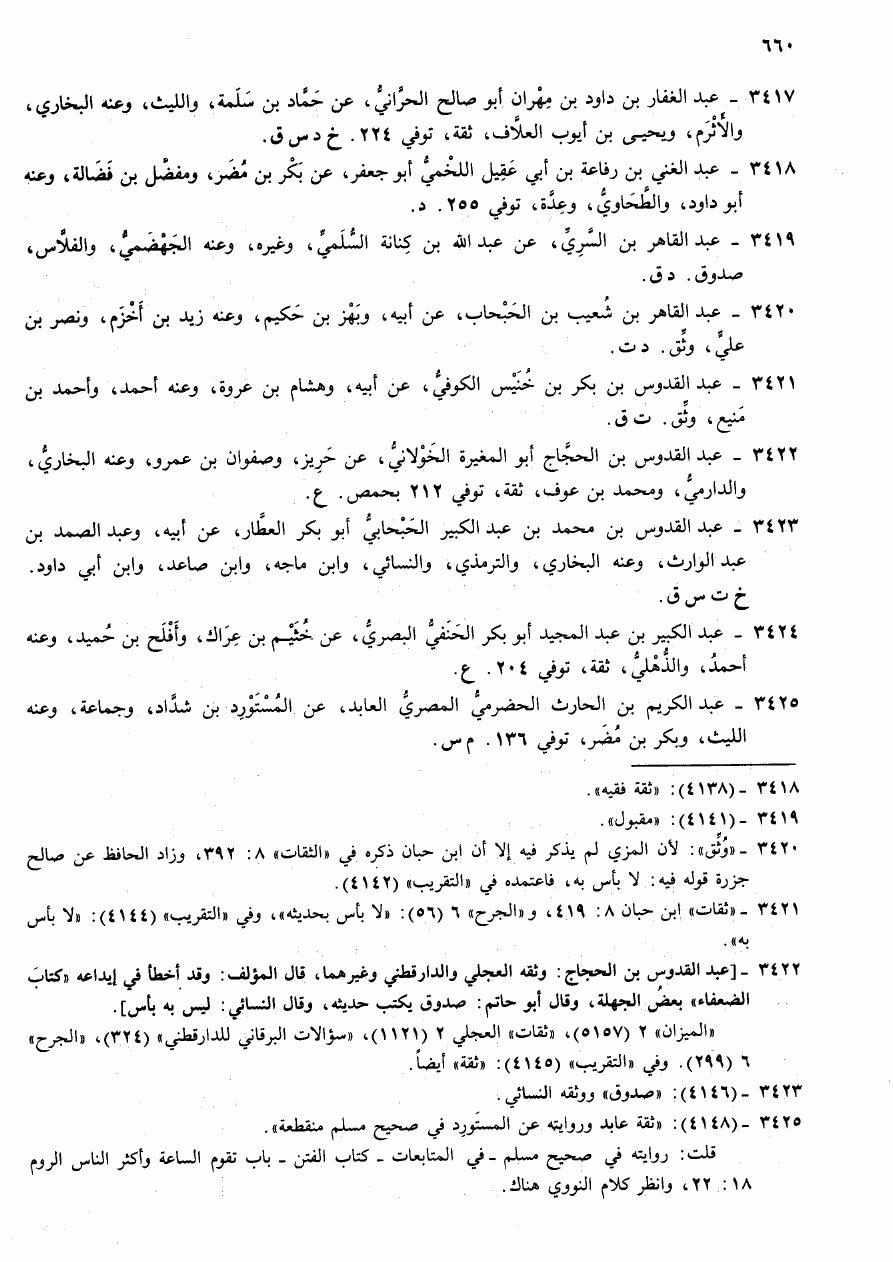 ٦٦٠
٣٤١٧ - عبد الغفار بن داود بن مِهْران أبو صالح الحرَّانيُّ، عن حَمَّاد بن سَلَمة، والليث، وعنه البخاري،
والأَثْرَم، ويحيى بن أيوب العلَّاف، ثقة، توفي ٢٢٤. خ د س ق.
٣٤١٨ - عبد الغني بن رفاعة بن أبي عَقِيل اللخْميُّ أبو جعفر، عن بَكْر بن مُضَر، ومفضْل بن فَضَالة، وعنه
أبو داود، والطَّحَاويُّ، وعِدَّة، توفي ٢٥٥. د.
٣٤١٩ - عبد القاهر بن السَّرِيِّ، عن عبد الله بن كِنانة السُّلَميِّ، وغيره، وعنه الجَهْضَميُّ، والفلَّاس،
صدوق. د ق.
٣٤٢٠ - عبد القاهر بن شُعيب بن الحَبْحاب، عن أبيه، وبَهْز بن حَكيم، وعنه زيد بن أَخْزَم، ونصر بن
عليٍّ، وثِّق. د ت.
٣٤٢١ - عبد القدوس بن بكر بن خُنَيْس الكوفيُّ، عن أبيه، وهشام بن عروة، وعنه أحمد، وأحمد بن
مَنيع، وثِّق. ت ق.
٣٤٢٢ - عبد القدوس بن الحجَّاج أبو المغيرة الخَوْلانيُّ، عن حَرِيز، وصفوان بن عمرو، وعنه البخاريُّ،
والدارميُّ، ومحمد بن عوف، ثقة، توفي ٢١٢ بحمص. ع.
٣٤٢٣ - عبد القدوس بن محمد بن عبد الكبير الحَبْحابيُّ أبو بكر العطَّار، عن أبيه، وعبد الصمد بن
عبد الوارث، وعنه البخاري، والترمذي، والنسائي، وابن ماجه، وابن صاعد، وابن أبي داود.
خ ت س ق.
٣٤٢٤ - عبد الكبير بن عبد المجيد أبو بكر الحَنَفيُّ البصريُّ، عن خُثَيْم بن عِرَاك، وأَفْلَح بن حُميد، وعنه
أحمدُ، والذُّهْليُّ، ثقة، توفي ٢٠٤. ع.
٣٤٢٥ - عبد الكريم بن الحارث الحضرميُّ المصريُّ العابد، عن المُسْتَوْرِد بن شدَّاد، وجماعة، وعنه
الليث، وبكر بن مُضَر، توفي ١٣٦. م س.
٣٤١٨ - (٤١٣٨): «ثقة فقيه».
٣٤١٩ - (٤١٤١): «مقبول».
٣٤٢٠ - «وُثِّق»: لأن المزي لم يذكر فيه إلا أن ابن حبان ذكره في «الثقات» ٨: ٣٩٢، وزاد الحافظ عن صالح
جزرة قوله فيه: لا بأس به، فاعتمده في «التقريب» (٤١٤٢).
٣٤٢١ - «ثقات» ابن حبان ٨: ٤١٩، و«الجرح» ٦ (٥٦): «لا بأس بحديثه»، وفي «التقريب» (٤١٤٤): «لا بأس
به».
٣٤٢٢ - [عبد القدوس بن الحجاج: وثقه العجلي والدارقطني وغيرهما، قال المؤلف: وقد أخطأ في إيداعه «كتابَ
الضعفاء» بعضُ الجهلة، وقال أبو حاتم: صدوق يكتب حديثه، وقال النسائي: ليس به بأس].
«الميزان» ٢ (٥١٥٧)، «ثقات» العجلي ٢ (١١٢١)، «سؤالات البرقاني للدارقطني» (٣٢٤)، «الجرح»
٦ (٢٩٩). وفي «التقريب» (٤١٤٥): «ثقة» أيضاً.
٣٤٢٣ - (٤١٤٦): «صدوق» ووثقه النسائي.
٣٤٢٥ - (٤١٤٨): «ثقة عابد وروايته عن المستَورِد في صحيح مسلم منقطعة».
قلت: روايته في صحيح مسلم - في المتابعات - كتاب الفتن - باب تقوم الساعة وأكثر الناس الروم
١٨: ٢٢، وانظر كلام النووي هناك.